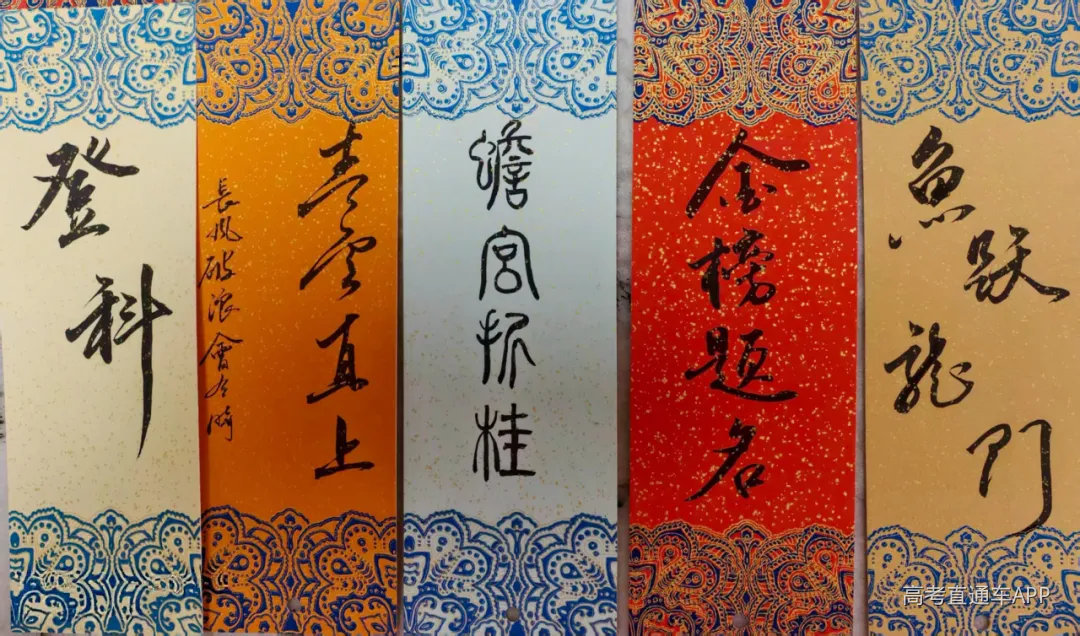 登科
青雲直上
長風破浪會有時
蟾宮折桂
金榜題名
魚跃龍门
高考直通车APP